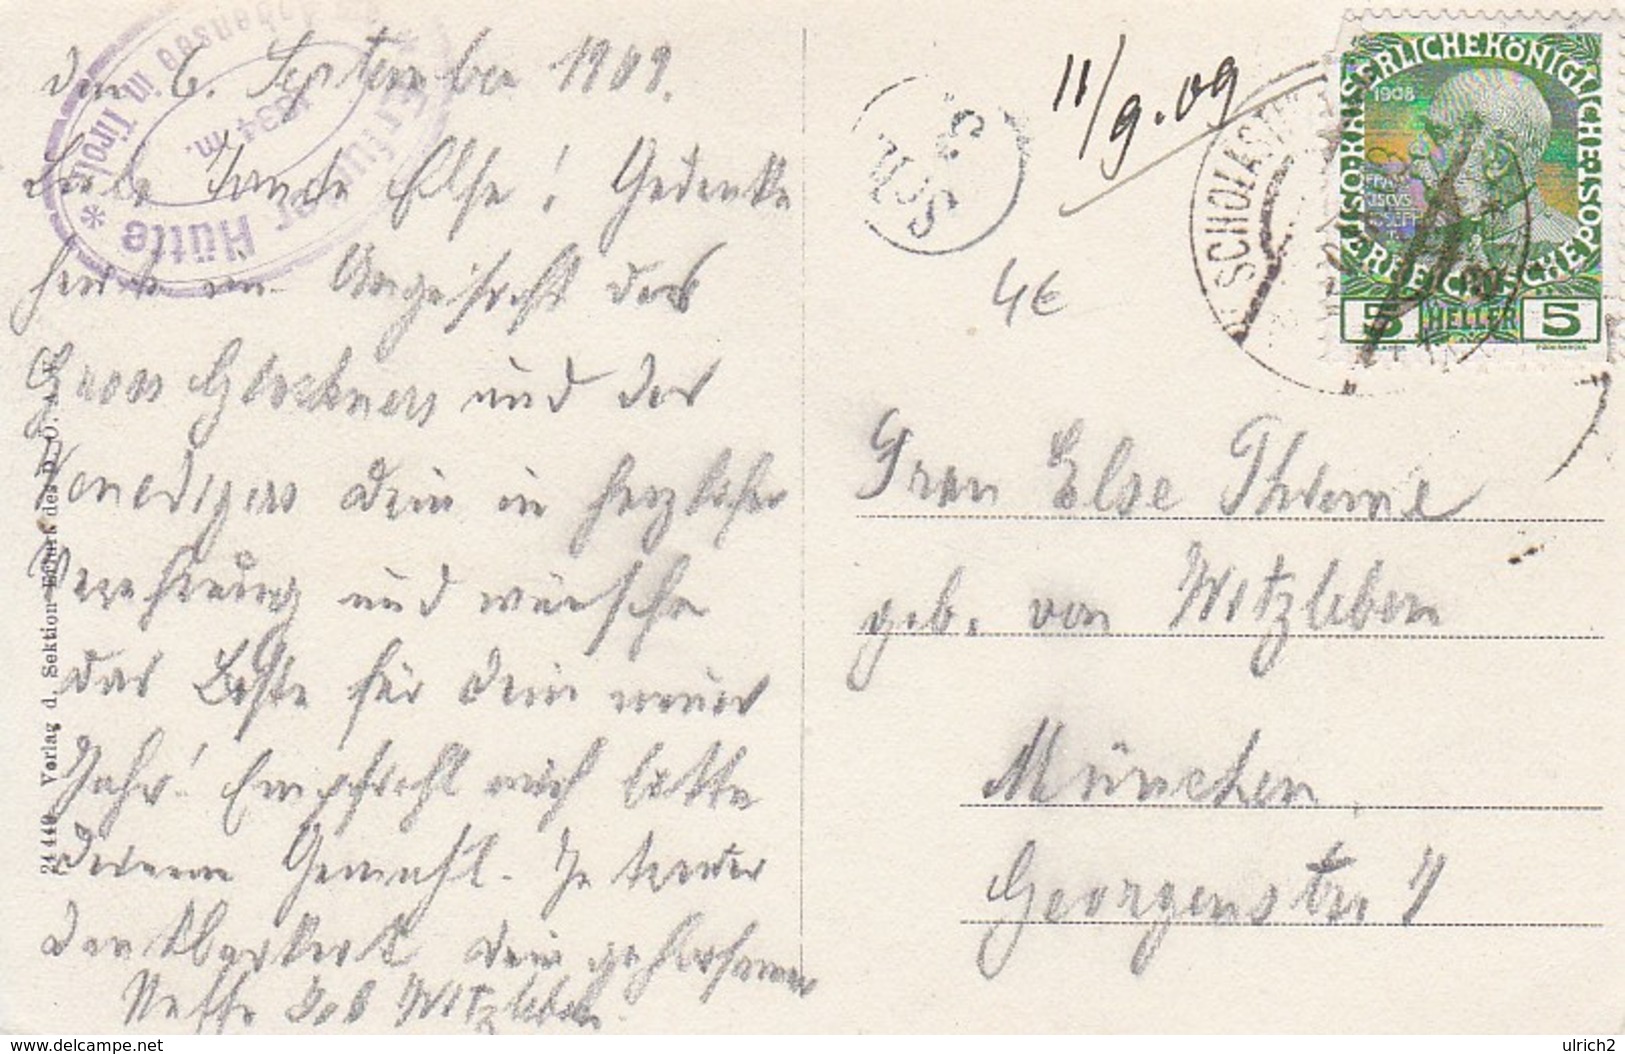 den 6. September 1909.
Liebe Tante Else! Gedenke
heute im Angesicht des
Gross Glockners und des
Venedigers Dein in herzlicher
Verehrung und wünsche
das Beste für Dein neues
Jahr! Empfehl mich bitte
Deinem Gemahl. In treuer
Dankbarkeit Dein gehorsamer
Neffe Job Witzleben.
Erfurter Hütte
1834 m.
in Tirol
24440 Verlag d. Sektion Erfurt des D. Ö. A. V.
11/9.09
4€
SCHOLAST
KAISERLICHE KÖNIGLICHE ÖSTERREICHISCHE POST
1908
FRANCISCUS JOSEPH I.
5 HELLER 5
Frau Else Thieme
geb. von Witzleben
München,
Georgenstr. 7
delcampe.net
ulrich2